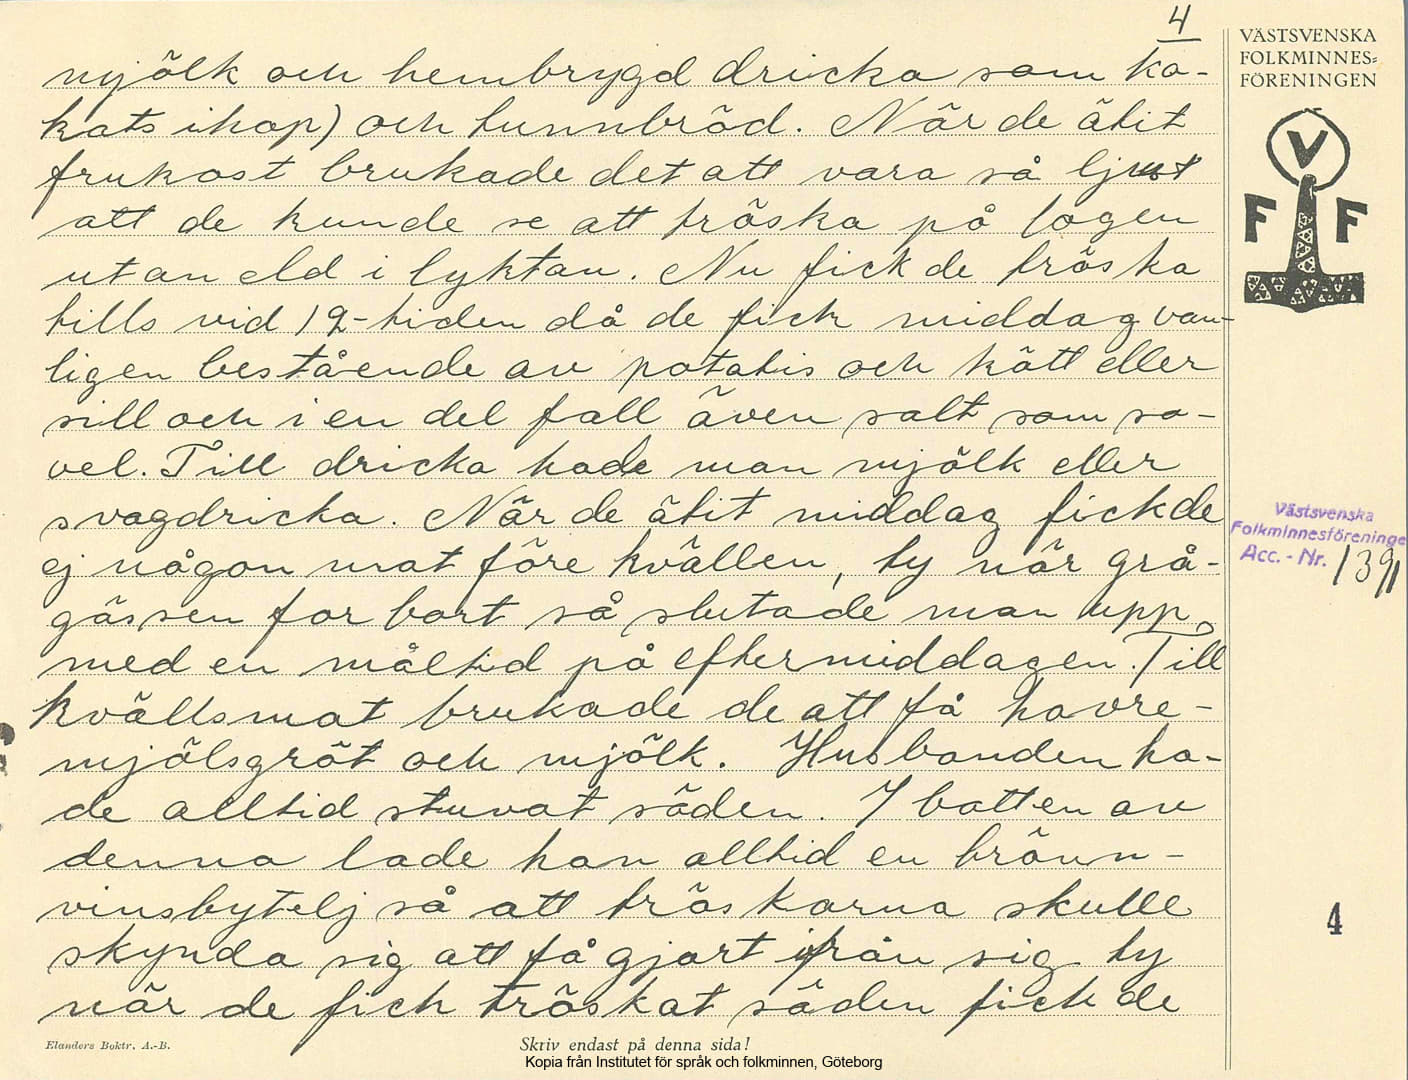 4
VÄSTSVENSKA
FOLKMINNES-
FÖRENINGEN
mjölk och hembrygd dricka som ko-
kats ihop) och tunnbröd. När de ätit
frukost brukade det att vara så ljust
att de kunde se att tröska på logen
utan eld i lyktan. Nu fick de tröska
tills vid 12-tiden då de fick middag van-
ligen bestående av potatis och kött eller
sill och i en del fall även salt som so-
vel. Till dricka hade man mjölk eller
svagdricka. När de ätit middag fick de
ej någon mat före kvällen, ty när grå-
gässen for bort så slutade man upp
med en måltid på eftermiddagen. Till
kvällsmat brukade de att få havre-
mjölsgröt och mjölk. Husbonden ha-
de alltid stuvat säden. I botten av
denna lade han alltid en bränn-
vinsbytelj så att tröskarna skulle
skynda sig att få gjort ifrån sig ty
när de fick tröskat säden fick de
V
F F
Västsvenska
Folkminnesföreninge
Acc. - Nr. 1391
4
Elanders Boktr. A.-B.
Skriv endast på denna sida!
Kopia från Institutet för språk och folkminnen, Göteborg